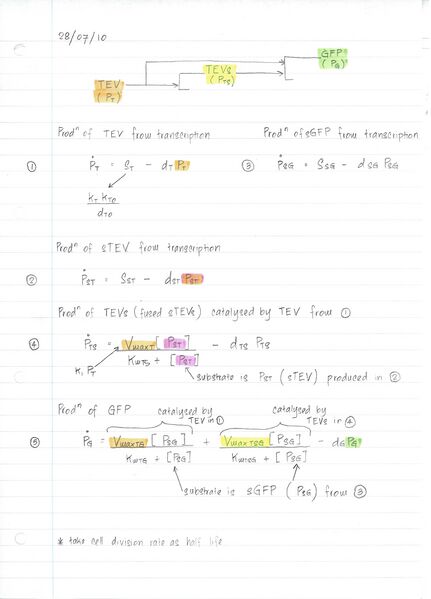 28/07/10
GFP
(PG)
TEVs
(PTS)
TEV
(PT)
Prodⁿ of TEV from transcription
Prodⁿ of sGFP from transcription
① ṖT = ST - dT PT
③ ṖSG = SSG - dSG PSG
kT kTO
dTO
Prodⁿ of sTEV from transcription
② ṖST = SST - dST PST
Prodⁿ of TEVs (fused sTEVs) catalysed by TEV from ①
④ ṖTS = VmaxT [PST] / KmTS + [PST] - dTS PTS
K, PT
substrate is PST (sTEV) produced in ②
Prodⁿ of GFP
catalysed by TEV in ①
catalysed by TEVs in ④
⑤ ṖG = VmaxTG [PSG] / KmTG + [PSG] + VmaxTSG [PSG] / KmTSG + [PSG] - dG PG
substrate is sGFP (PSG) from ③
* take cell division rate as half life